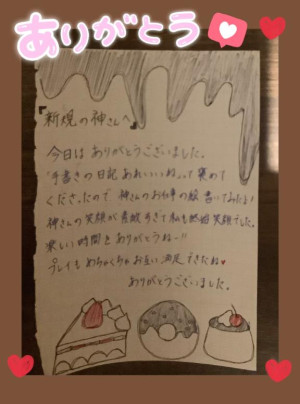 ありがとう
「新規の神さんへ」
今日は ありがとうございました。
"手書きの日記 あれいいね。って褒めて
くださったので 神さんのお仕事の絵 書いてみたよ!
神さんの笑顔が素敵すぎて私も終始笑顔でした。
楽しい時間を ありがとうね〜!!
プレイもめちゃくちゃお互い満足できたね♥
ありがとうございました。